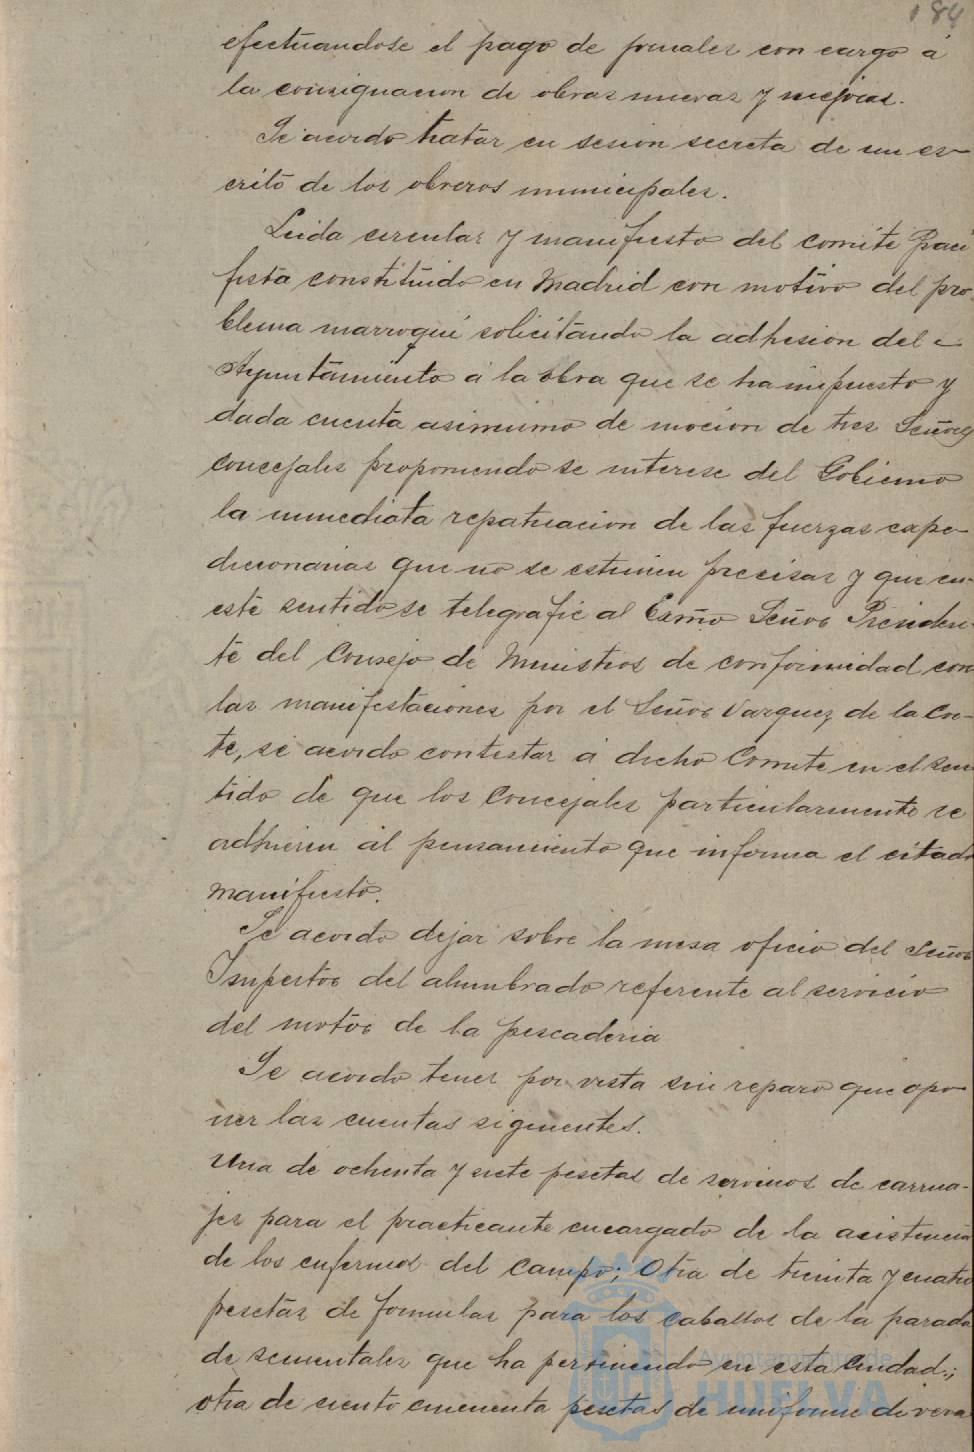 184
efectuandose el pago de jornales con cargo á
la consignacion de obras nuevas y mejoras.
Se acordo tratar en sesion secreta de un es-
crito de los obreros municipales.
Leida circular y manifiesto del comité Paci
fista constituido en Madrid con motivo del pro
blema marroqui solicitando la adhesion del
Ayuntamiento a la obra que se ha impuesto y
dada cuenta asimismo de mocion de tres Señores
concejales proponiendo se interese del Gobierno
la inmediata repatriacion de las fuerzas expe-
dicionarias que no se estimen precisas y que en
este sentido se telegrafie al Exmo Señor Presiden-
te del Consejo de Ministros de conformidad con
las manifestaciones por el Señor Vazquez de la Cor-
te, se acordo contestar á dicho Comite en el sen
tido de que los Concejales particularmente se
adhieren al pensamiento que informa el citado
manifiesto.
Se acordo dejar sobre la mesa oficio del Señor
Inspector del alumbrado referente al servicio
del motor de la pescaderia
Se acordo tener por vista sin reparo que opo-
ner las cuentas siguientes.
Una de ochenta y siete pesetas de servicios de carrua-
jes para el practicante encargado de la asistencia
de los enfermos del campo; Otra de treinta y cuatro
pesetas de formulas para los caballos de la parada
de sementales que ha permanecido en esta Ciudad;
otra de ciento cincuenta pesetas de uniforme de vera
Ayuntamiento de
HUELVA